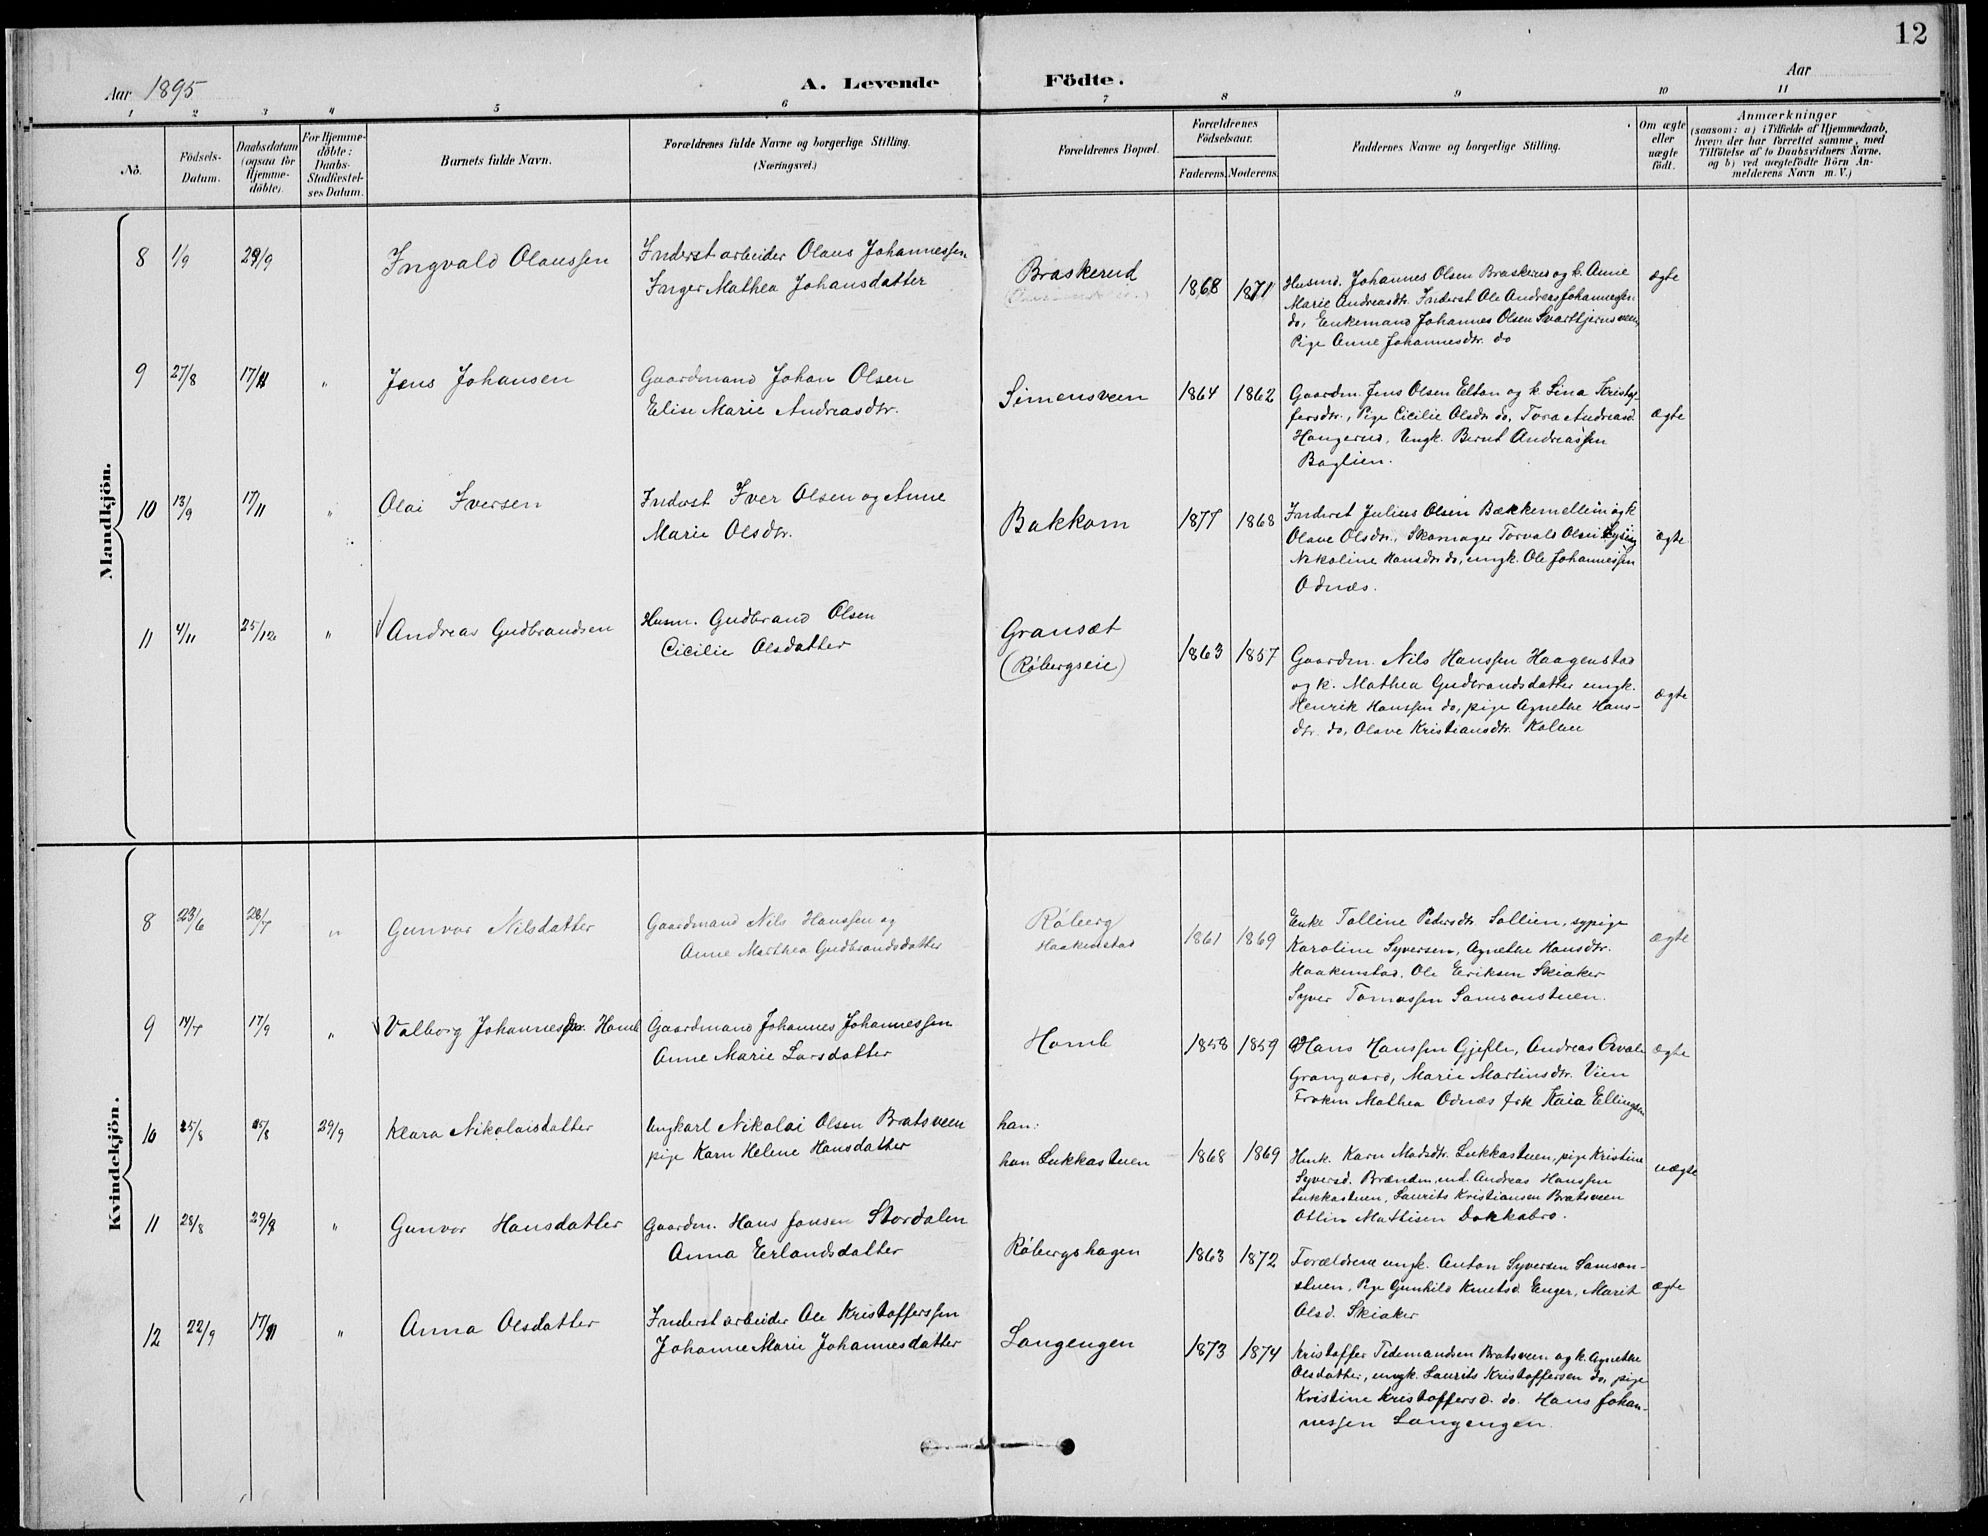 12
Aar 1895
A. Levende Födte.
Aar
1 2 3 4 5 6 7 8 9 10 11
No.
Födsels-Datum.
Daabsdatum (ogsaa for Hjemme-döbte).
For Hjemme-döbte: Daabs-Stadfæstel-ses Datum.
Barnets fulde Navn.
Forældrenes fulde Navne og borgerlige Stilling.
(Næringsvei.)
Forældrenes Bopæl.
Forældrenes Födselsaar.
Faderens. Moderens.
Faddernes Navne og borgerlige Stilling.
Om ægte eller uægte födt.
Anmærkninger
(saasom: a) i Tilfælde af Hjemmedaab,
hvem der har forrettet samme, med
Tilföielse af to Daabsvidners Navne.
og b) ved uægtefödte Börn An-
melderens Navn m. V.)
Mandkjön.
8 1/9 29/9 Ingvald Olaussen
Inderst arbeider Olaus Johannessen
Inger Mathea Johansdatter
Braskerud
1868 1871
Husmd. Johannes Olsen Braskerud og k. Anne
Marie Andreasdtr. Inderst Ole Andreas Johannessen
do, Enkemand Johannes Olsen Svarttjernsveen
Pige Anne Johannesdtr. do
ægte
9 27/8 17/11 " Jens Johansen
Gaardmand Johan Olsen
Elise Marie Andreasdtr.
Simensveen
1864 1862
Gaardm. Jens Olsen Elton og k. Lina Kristof-
fersdtr., Pige Cicilie Olsdtr do, Tora Andreasd.
Haugerud, Ungk. Bernt Andreassen
Baglien.
ægte
10 13/9 17/11 " Olai Iversen
Inderst Iver Olsen og Anne
Marie Olsdtr.
Bakkom
1877 1868
Inderst Julius Olsen Bækkemellem og k
Olave Olsdtr., Skomager Torvald Olsen
Nikoline Hansdtr do, ungk. Ole Johannessen
Odnæs.
ægte
11 4/11 25/12 " Andreas Gudbrandsen
Husm. Gudbrand Olsen
Cicilie Olsdatter
Gransæt
(Röbergseie)
1863 1857
Gaardm. Nils Hanssen Haagenstad
og k. Mathea Gudbrandsdatter ungk.
Henrik Hanssen do, pige Agnethe Hans-
dtr. do, Olave Kristiansdtr. Kolben
ægte
Kvindekjön.
8 23/6 28/7 " Gunvor Nilsdatter
Gaardmand Nils Hanssen og
Anne Marthea Gudbrandsdatter
Röberg
Haakenstad
1861 1869
Enke Talline Pedersdtr. Sollien, sypige
Karoline Syversen, Agnethe Hansdtr.
Haakenstad, Ole Eriksen Skiaker
Syver Tomassen Samsonstuen.
ægte
9 14/7 17/9 " Valborg Johannesen Homb
Gaardmand Johannes Johannessen
Anne Marie Larsdatter
Homb
1858 1859
Hans Hanssen Gjefle, Andreas
Grangaard, Marie Martinsdtr. Vien
Frøken Mathea Odnæs frk Kaia Ellingsen
ægte
10 25/8 25/8 29/9 Klara Nikolaisdatter
Ungkarl Nikolai Olsen Bratsveen
pige Karn Helene Hansdatter
han:
hun Lukkastuen
1868 1869
Husk. Karn Madsdtr. Lukkastuen, pige Kristine
Syversd. Brænden, md. Andreas Hanssen
Lukkastuen, Laurits Kristiansen Bratsveen
Otlin Mattisen Dokkabro.
uægte
11 28/8 29/9 " Gunvor Hansdatter
Gaardm. Hans Jansen Stordalen
Anna Erlandsdatter
Röbergshagen
1863 1872
Forældrene ungk. Anton Syversen Samson-
stuen, Pige Gunhild Knutsd. Enger, Marit
Olsd. Skiaker
ægte
12 22/9 17/11 " Anna Olsdatter
Inderst arbeider Ole Kristofferssen
Johanne Marie Johannesdatter
Langengen
1873 1874
Kristoffer Tidemandsen Bratsveen og k. Agnethe
Olsdatter, ungk. Laurits Kristoffersen do, pige
Kristine Kristoffersd. do. Hans Johan-
nessen Langengen.